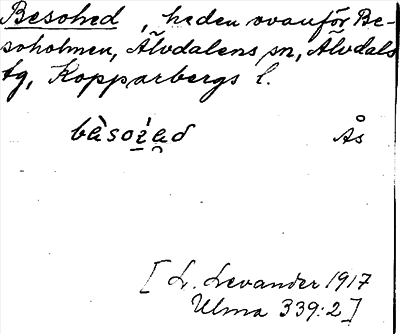 Besohed, heden ovanför Be-
soholmen, Älvdalens sn, Älvdals
tg, Kopparbergs l.
Ås
[L. Levander 1917
Ulma 339:2]